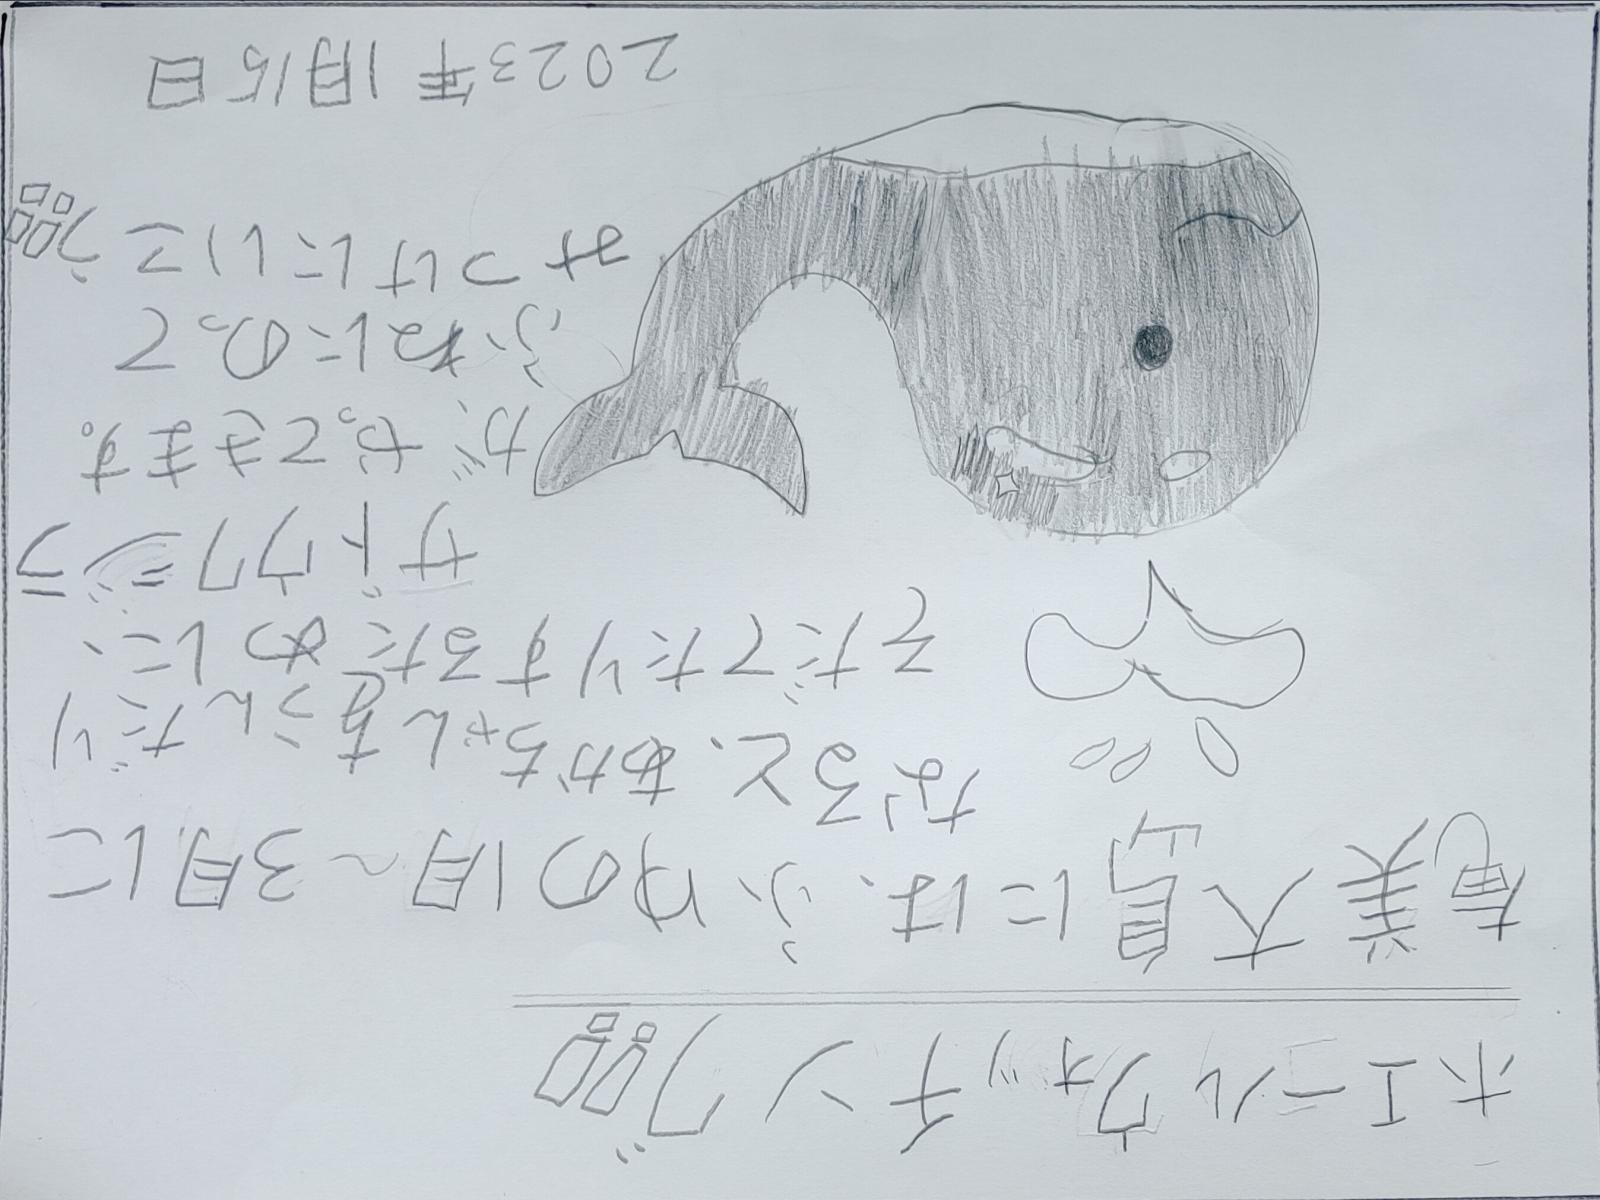 ホエールウォッチング!!
奄美大島には、ふゆの1月～3月に
なると、あかちゃんをうんだり
そだてたりするために、
ザトウクジラ
がやってきます。
ふねにのって
みつけにいこう!!
2023年1月15日